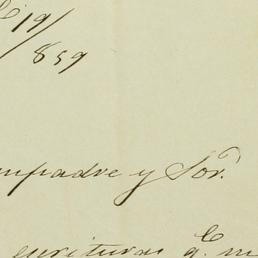 19/
/859
mpadre y Sor.
escrituras q.e m